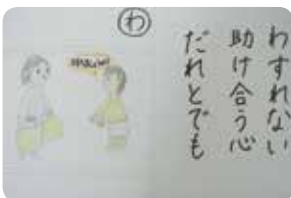 わすれない
助け合う心
だれとでも
わ